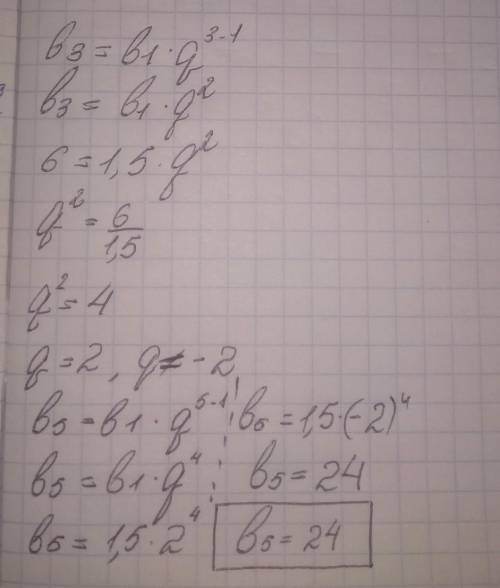 b3 = b1 · q^3-1
b3 = b1 · q^2
6 = 1,5 · q^2
q^2 = 6/1,5
q^2 = 4
q = 2, q = -2
b5 = b1 · q^5-1
b5 = b1 · q^4
b5 = 1,5 · 2^4
b5 = 1,5 · (-2)^4
b5 = 24
b5 = 24